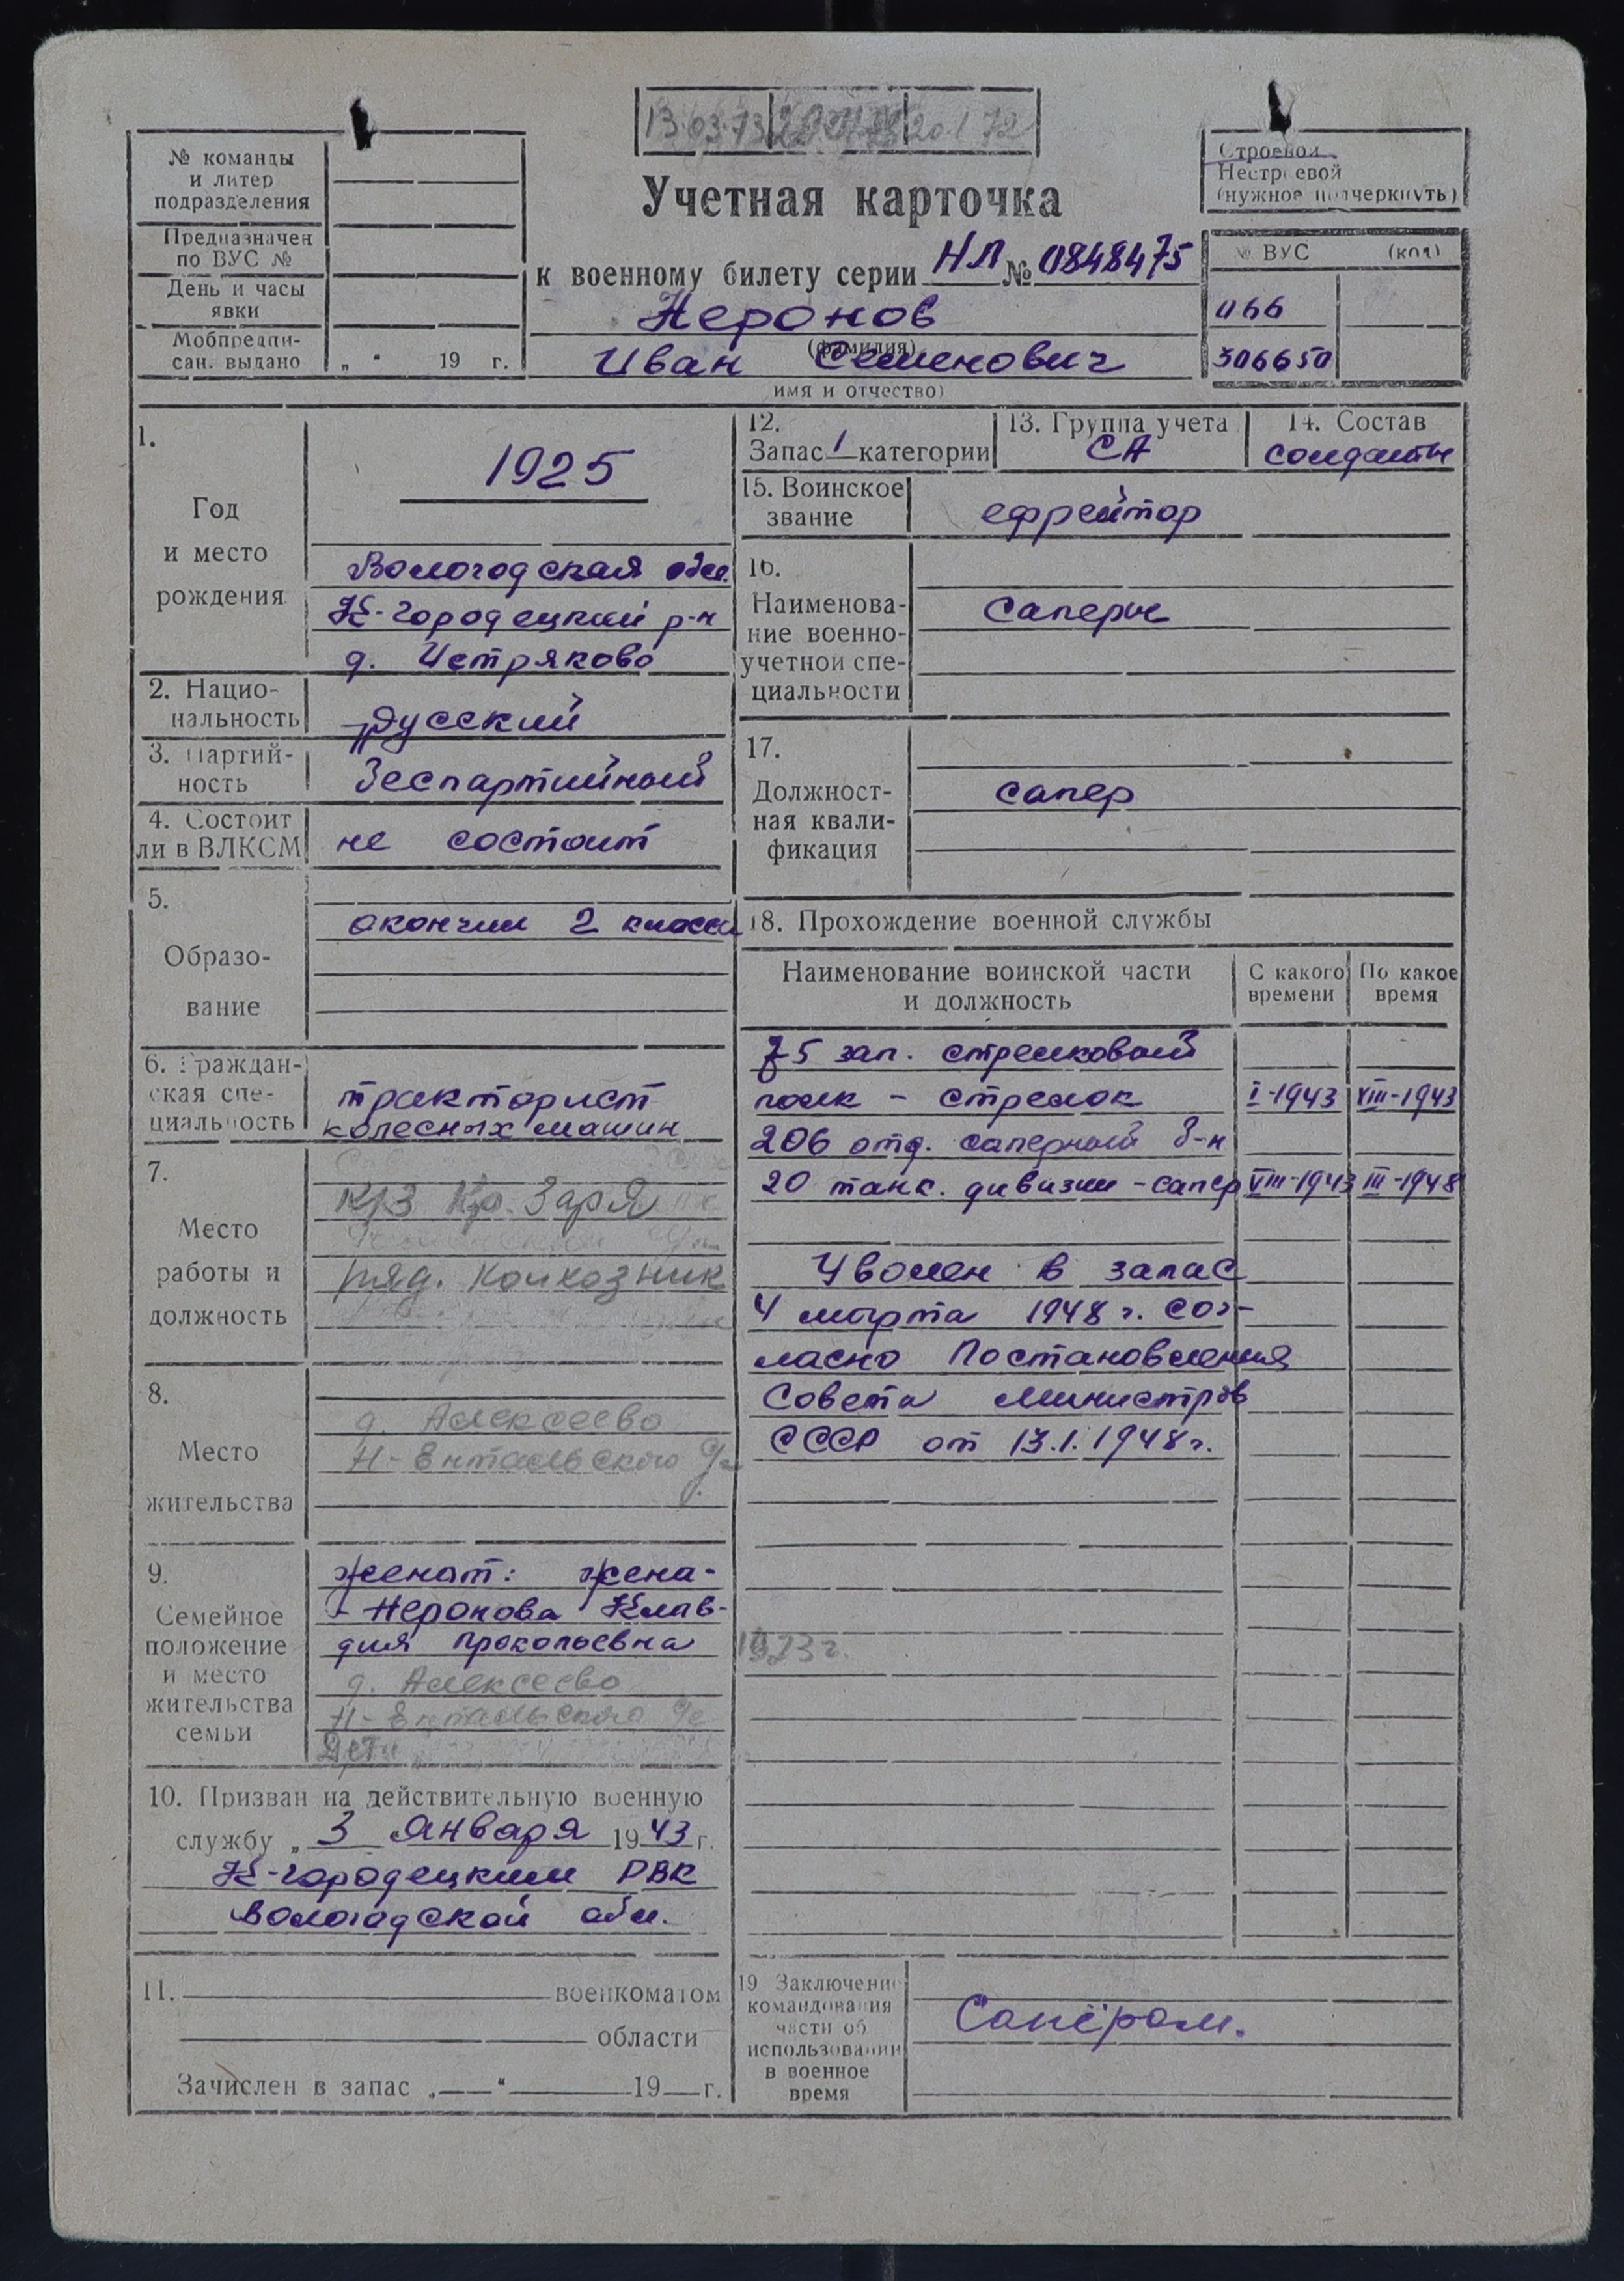 13.03.73 20.1 72
№ команды
и литер
подразделения
Предназначен
по ВУС №
День и часы
явки
Мобпредпи-
сан. выдано „ “ 19 г.
Учетная карточка
к военному билету серии НЛ № 0848475
Неронов
(фамилия)
Иван Семенович
имя и отчество)
Строевой
Нестроевой
(нужное подчеркнуть)
№ ВУС (код)
066
306650
1.
Год
и место
рождения
1925
Вологодская обл.
К-городецкий р-н
д. Истряково
2. Нацио-
нальность
русский
3. Партий-
ность
беспартийный
4. Состоит
ли в ВЛКСМ
не состоит
5.
Образо-
вание
окончил 2 класса
6. Граждан-
ская спе-
циальность
тракторист
колесных машин
7.
Место
работы и
должность
к/з Кр. Заря
ряд. колхозник
8.
Место
жительства
д. Алексеево
Н-Ентальского
9.
Семейное
положение
и место
жительства
семьи
женат: жена-
- Неронова Клав-
дия Прокопьевна
д. Алексеево
Н-Ентальского
Дети
10. Призван на действительную военную
службу „ 3 января 1943 г.
К-городецким РВК
Вологодской обл.
11. военкоматом
области
Зачислен в запас „ “ 19 г.
12.
Запас 1 категории
13. Группа учета
СА
14. Состав
солдаты
15. Воинское
звание
ефрейтор
16.
Наименова-
ние военно-
учетной спе-
циальности
Саперы
17.
Должност-
ная квали-
фикация
сапер
18. Прохождение военной службы
Наименование воинской части
и должность
С какого
времени
По какое
время
75 зап. стрелковый
полк - стрелок I-1943 VIII-1943
206 отд. саперный б-н
20 танк. дивизии - сапер VIII-1943 III-1948
Уволен в запас
4 марта 1948 г. сог-
ласно Постановления
Совета Министров
СССР от 13.1.1948г.
1973г.
19 Заключение
командования
части об
использовании
в военное
время
Сапёром.